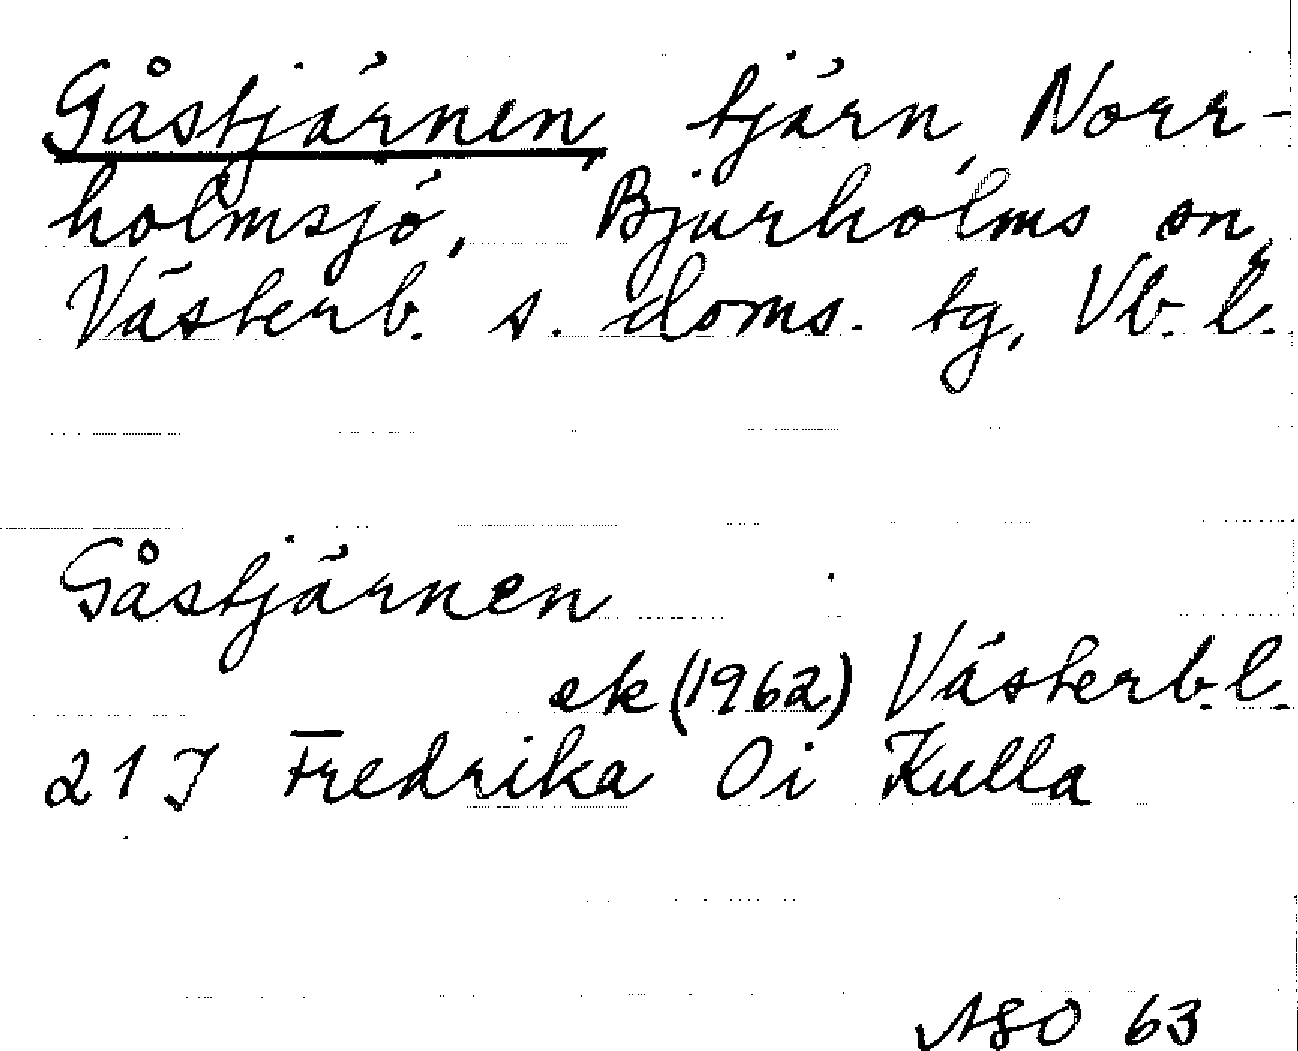 Gåstjärnen, tjärn, Norr-
holmsjö, Bjurholms sn,
Västerb. s. doms. tg, Vb. l.
Gåstjärnen
ek (1962) Västerb. l.
21 J Fredrika 0i Kulla
ASO 63